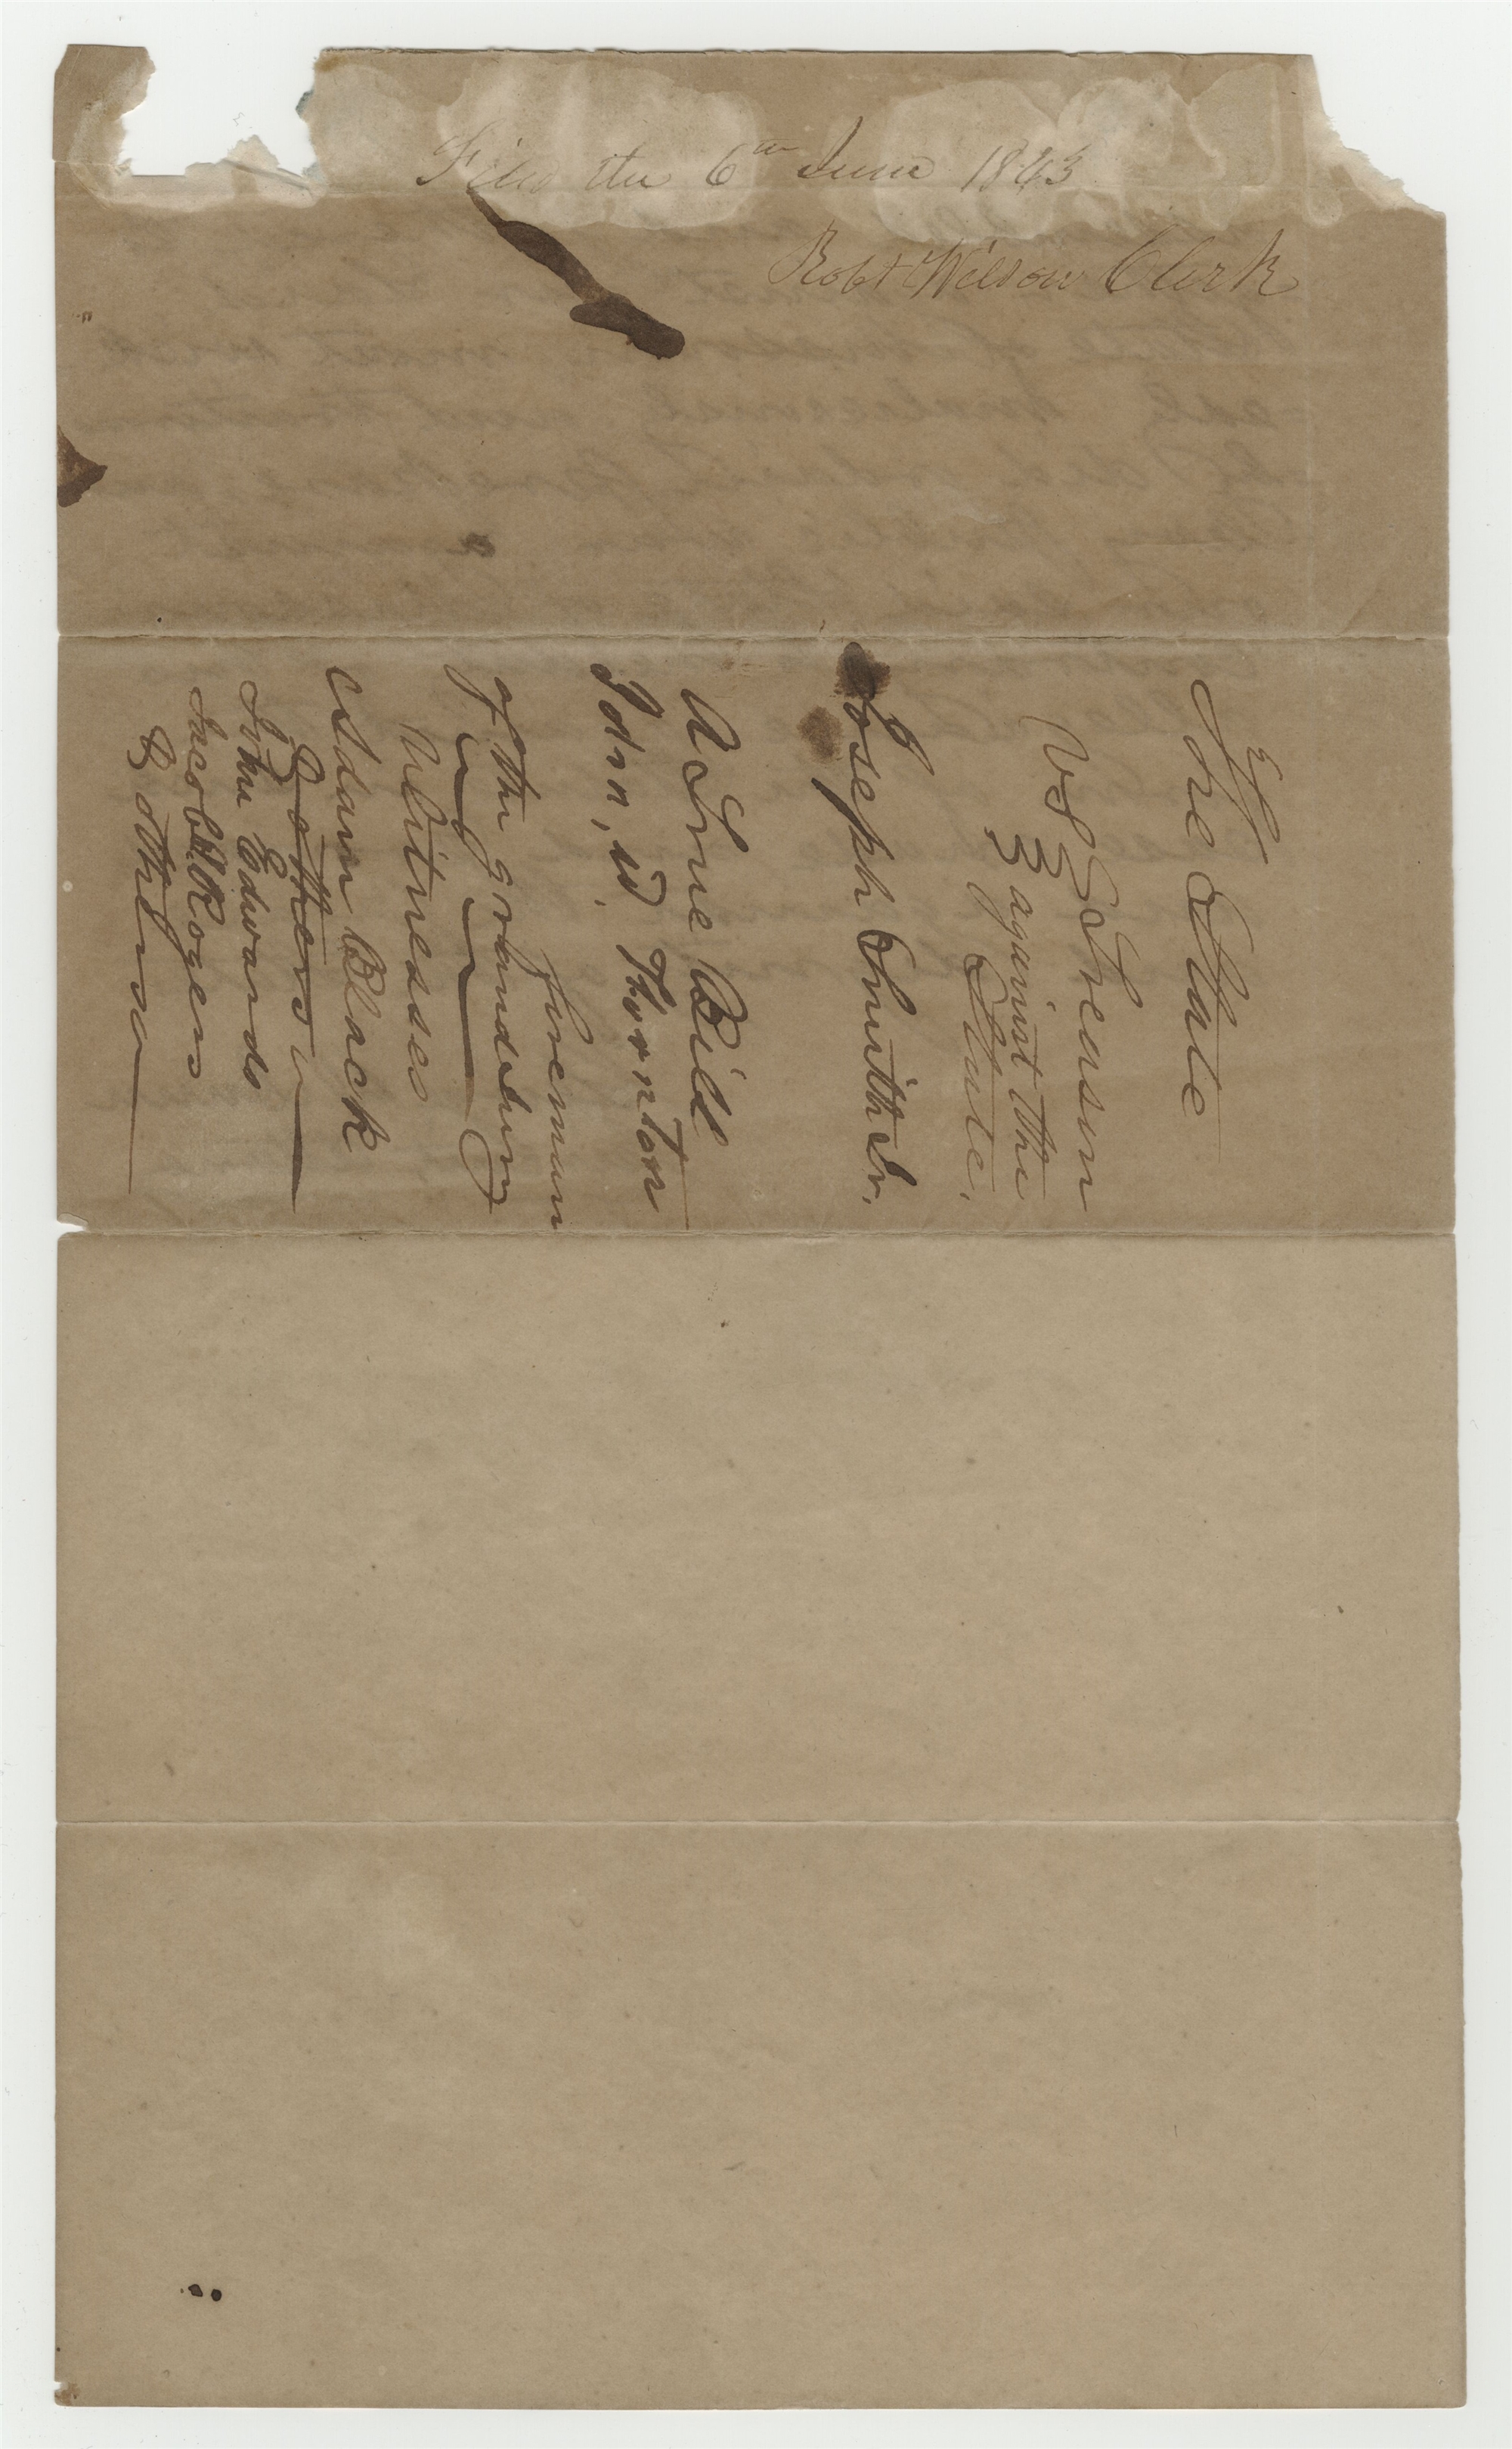 Filed the 6th June 1843
Robt Wilson Clerk
The State
vs } Treason
} against the
State.
Joseph Smith Jr.
A True Bill
John, W, Thornton
foreman
of the grandjury
Witnesses
Addam Black
& others
John Edwards
Jacob Rogers
& others